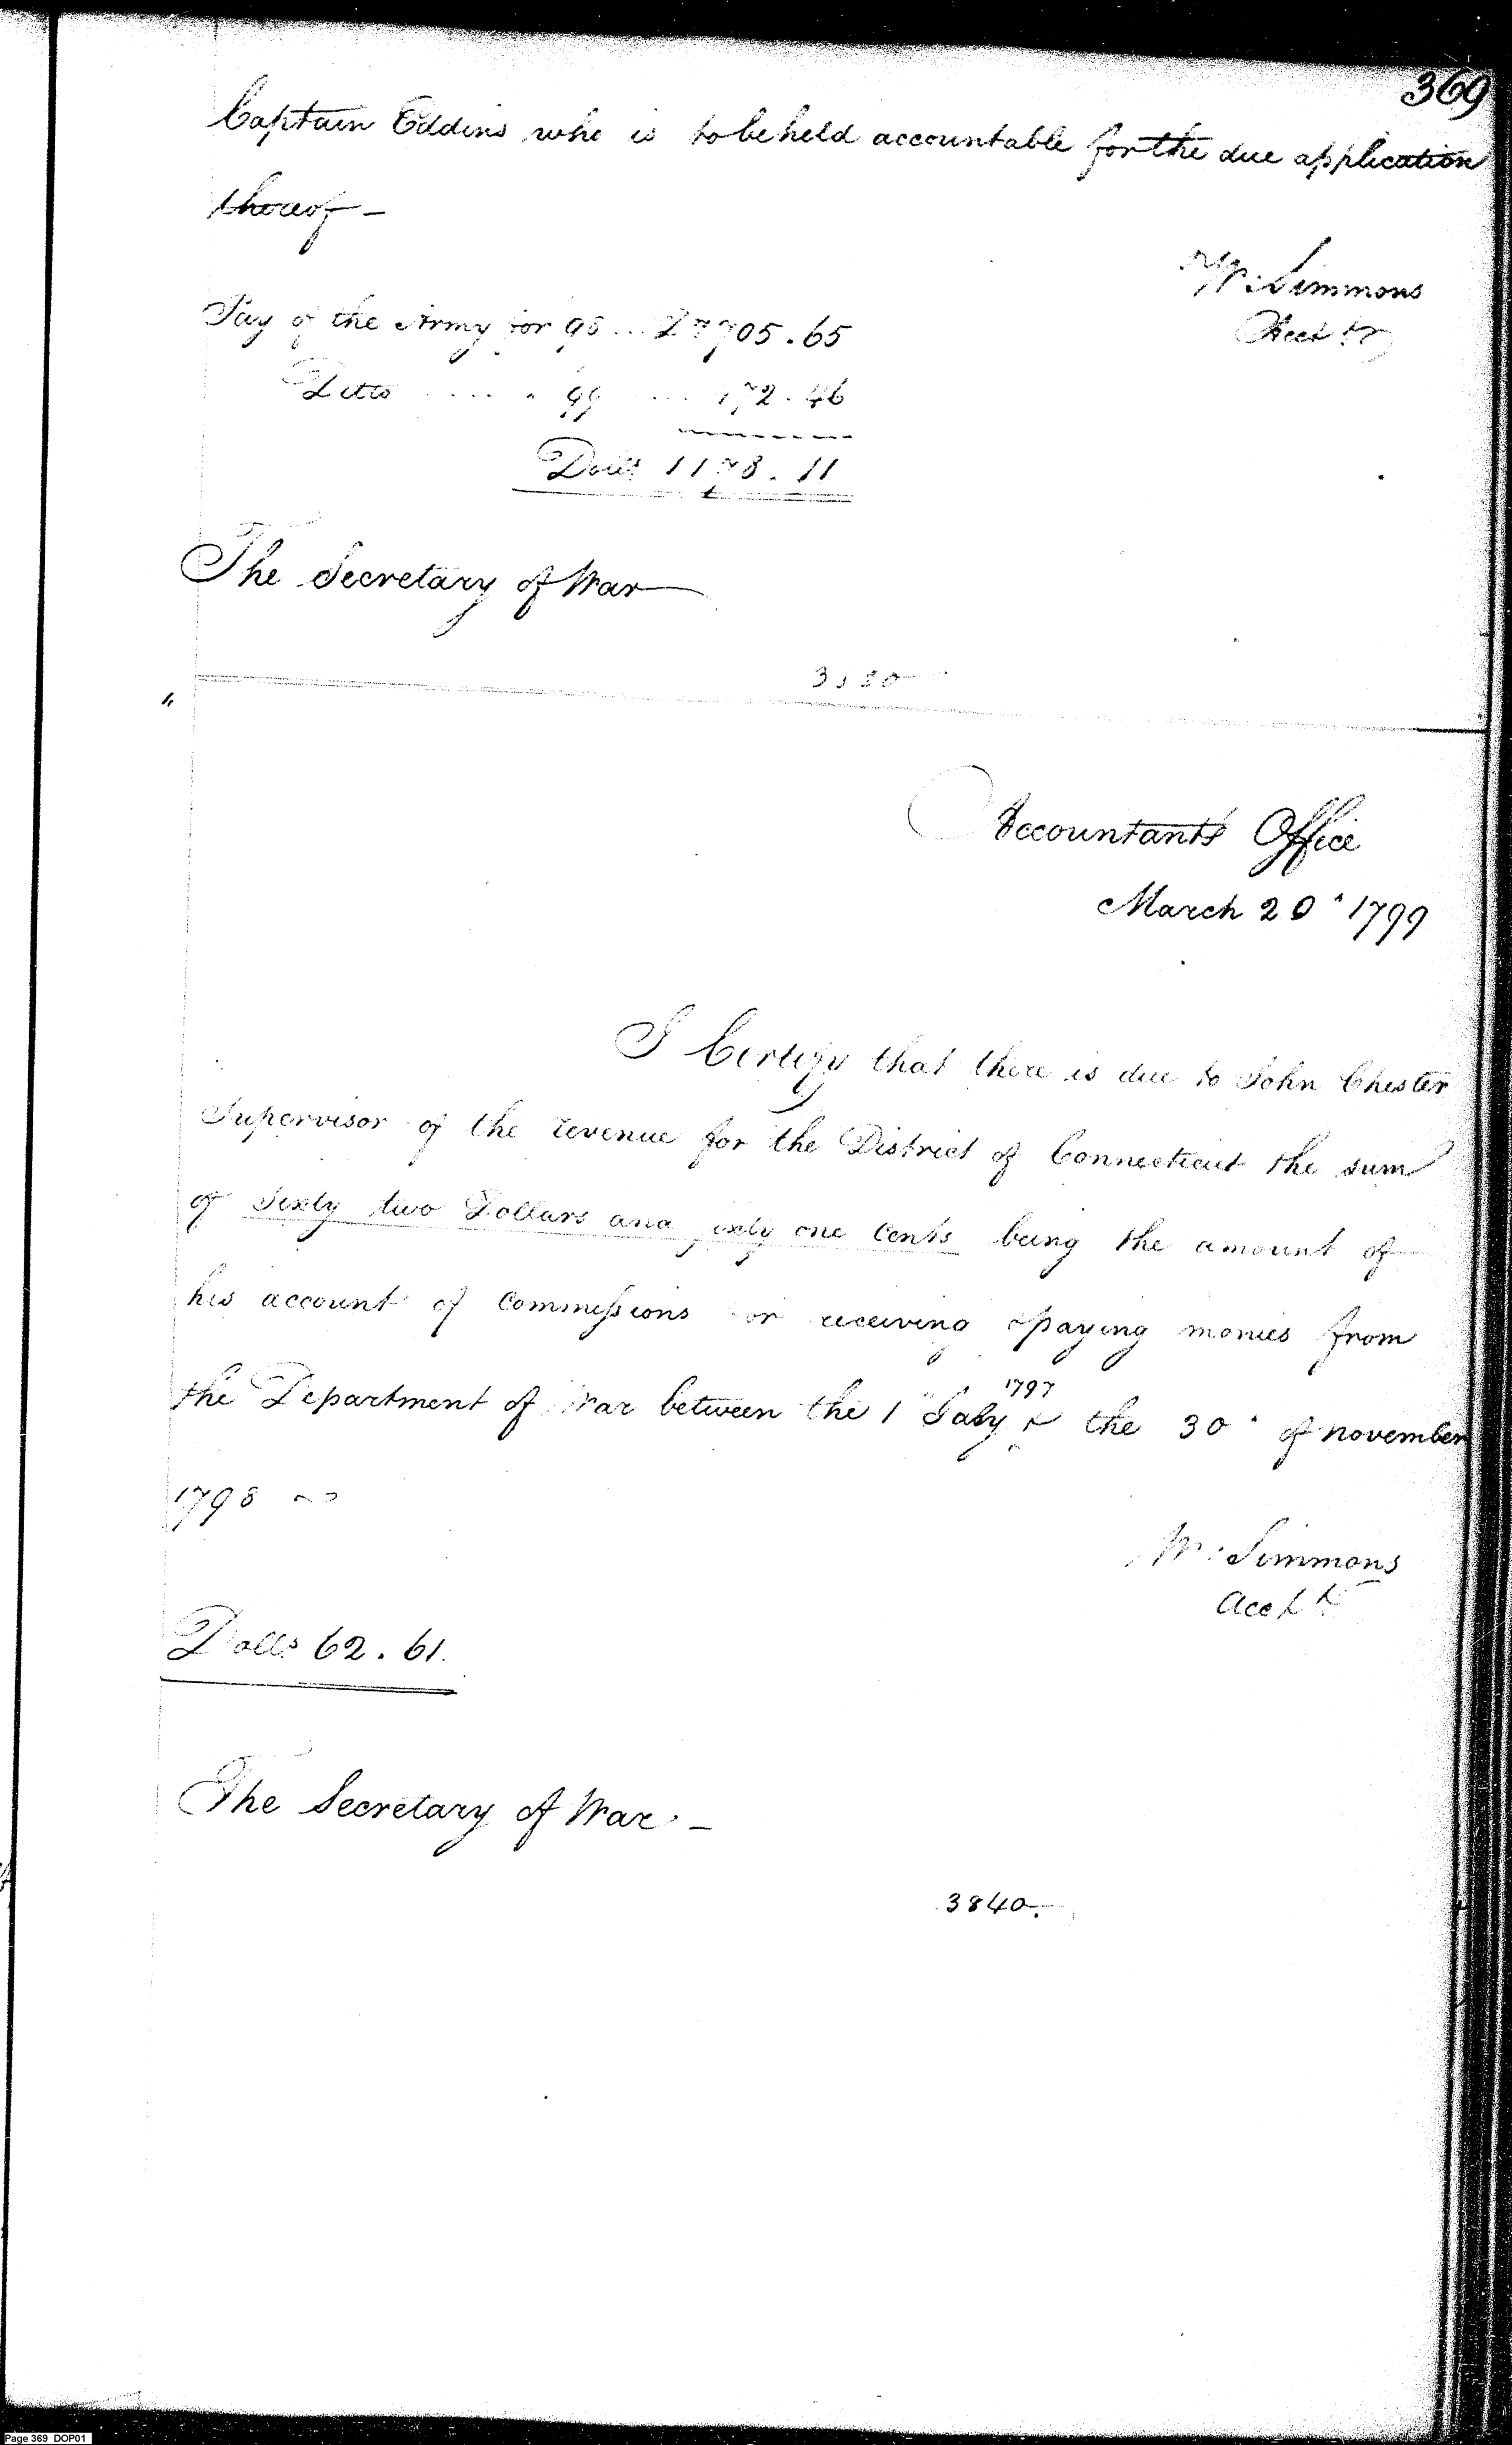 369
Captain Eddins who is to be held accountable for the due application
thereof –
W: Simmons
Acct
Pay of the Army for 98 ... 705.65
Ditto .... " 99 .... 472.46
Dolls 1178.11
The Secretary of War
Accountants Office
March 20" 1799
I Certify that there is due to John Chester
Supervisor of the revenue for the District of Connecticut the sum
of Sixty two Dollars and sixty one Cents being the amount of
his account of Commissions for receiving & paying monies from
1797
the Department of War between the 1 July & the 30" of november
1798
W: Simmons
Acct
Dolls 62.61.
The Secretary of War. –
3840.
Page 369 DOP01